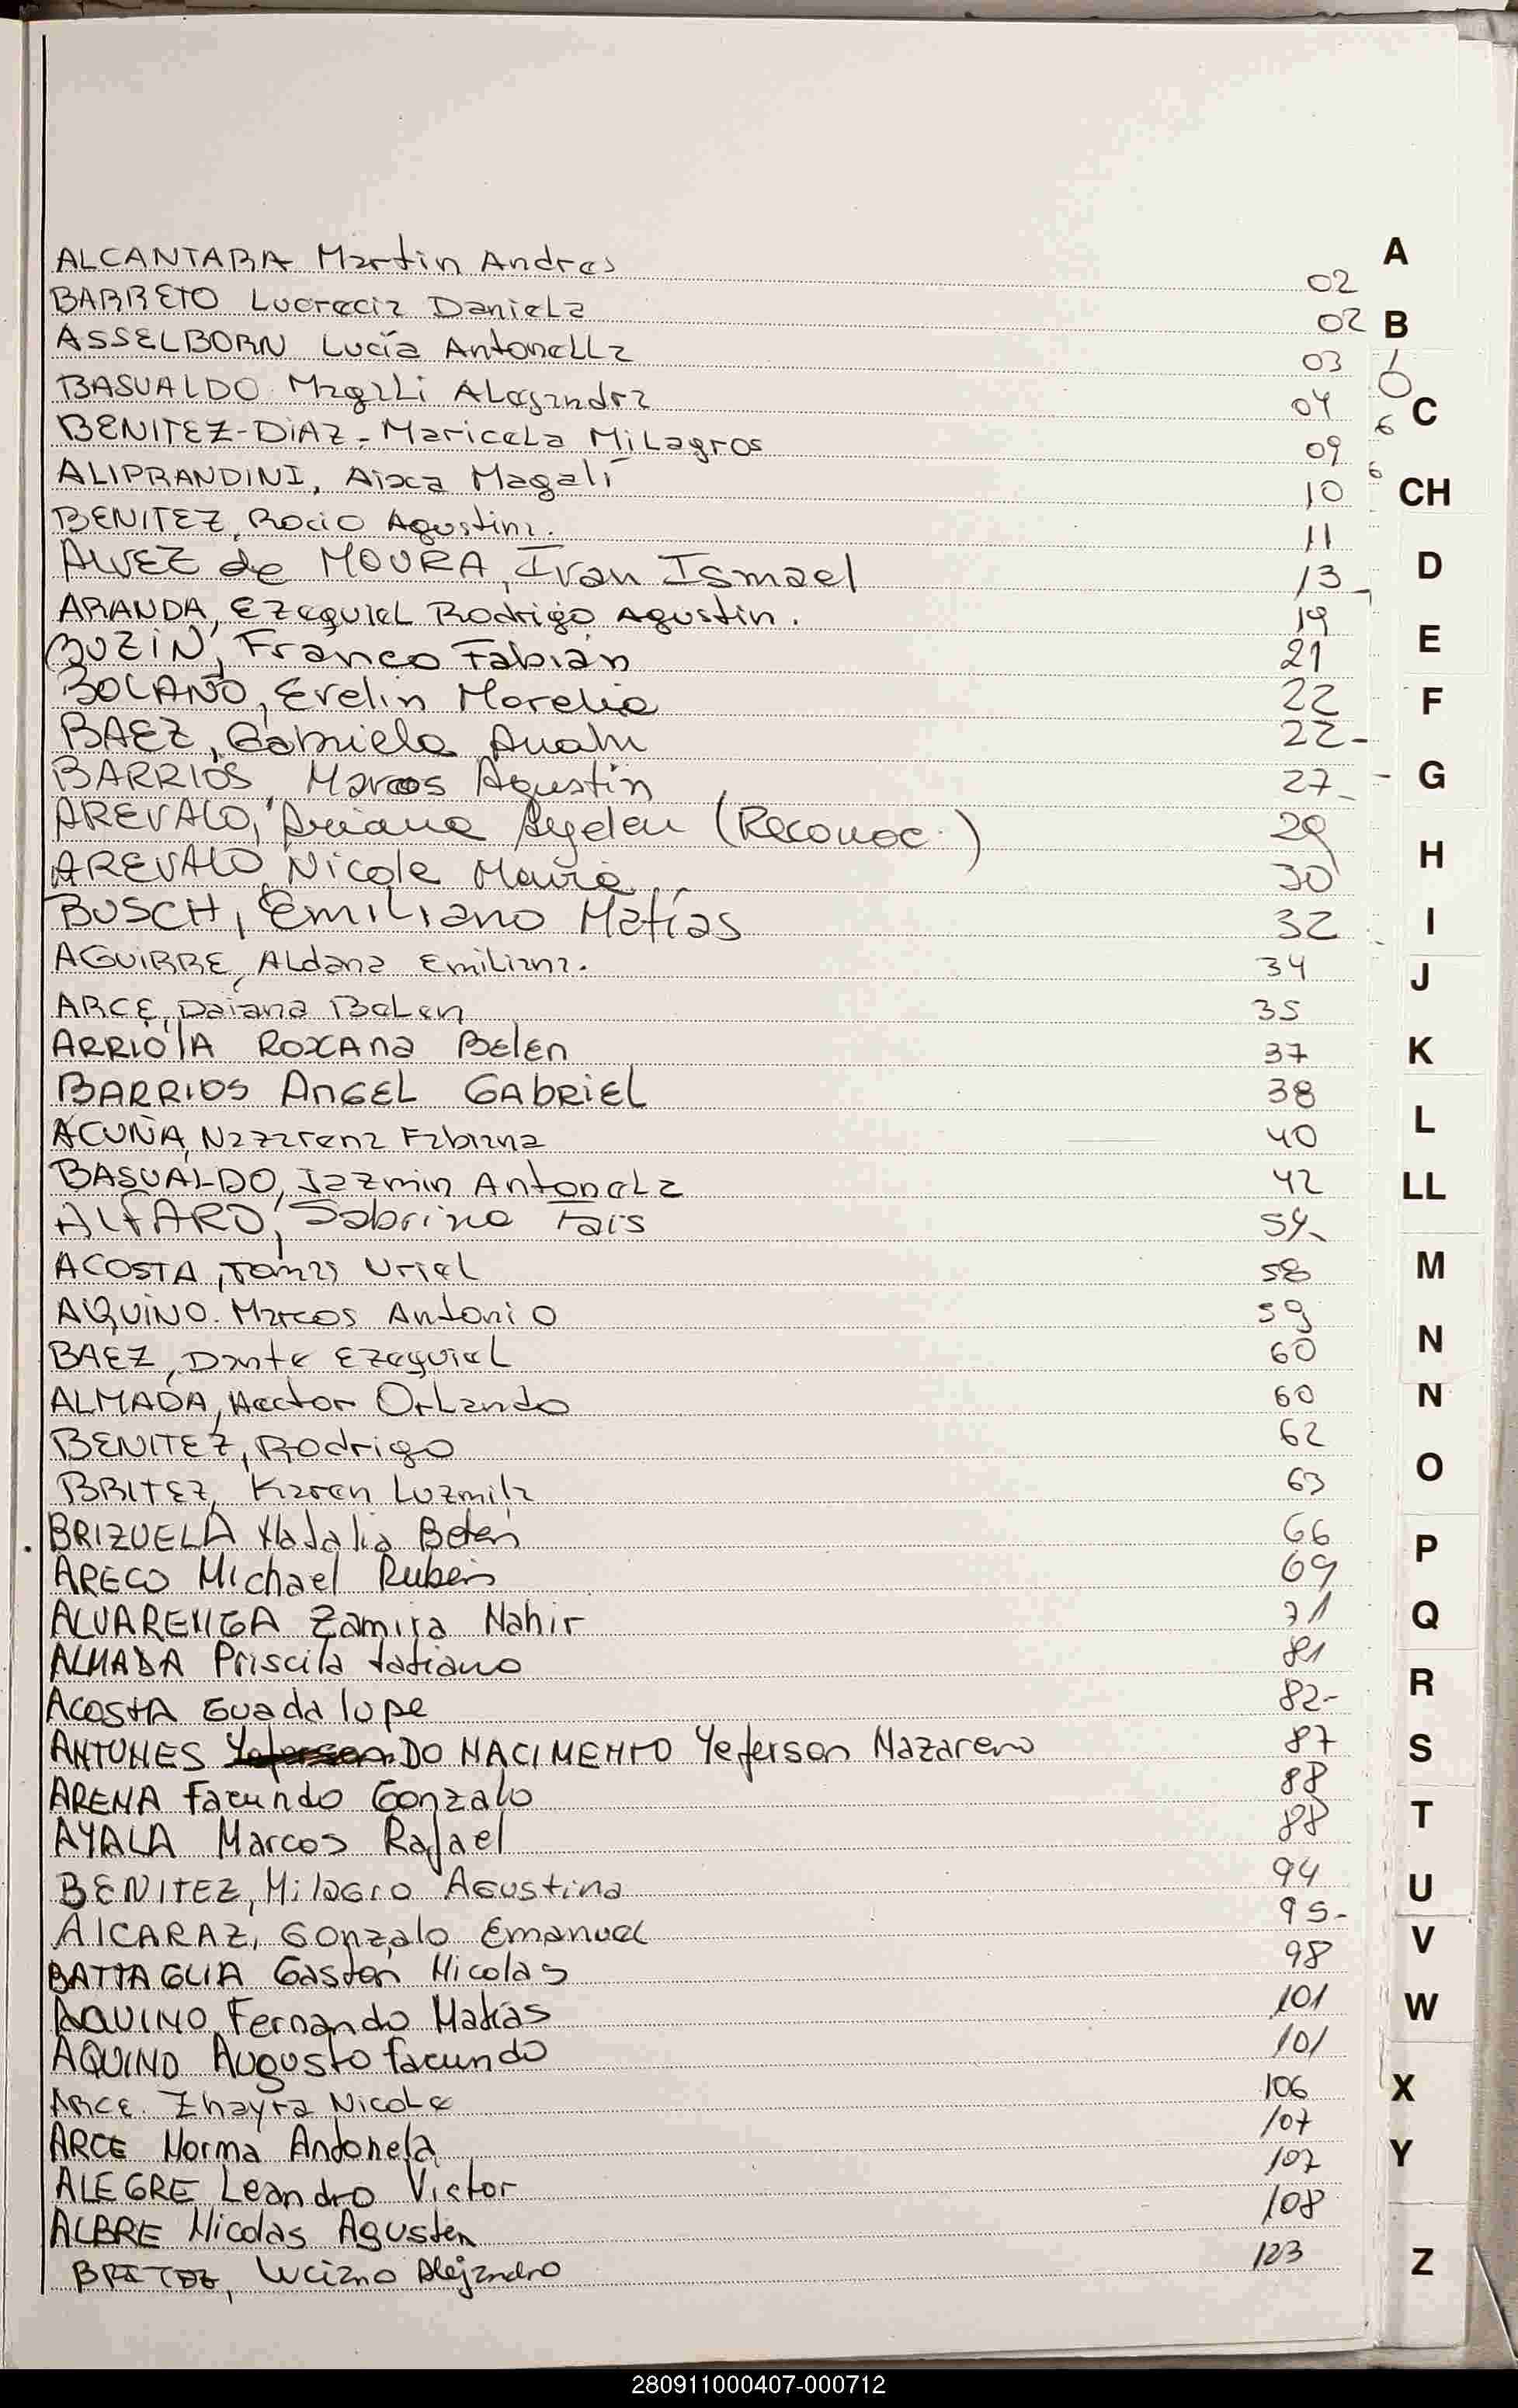 ALCANTARA Martin Andres 02
BARRETO Lucrecia Daniela 02
ASSELBORN Lucía Antonella 03
BASUALDO Magali Alejandra 04
BENITEZ-DIAZ- Maricela Milagros 09
ALIPRANDINI, Aixa Magalí 10
BENITEZ, Rocio Agustina. 11
ALVEZ de MOURA, Ivan Ismael 13
ARANDA, Ezequiel Rodrigo Agustin. 19
BUZIN, Franco Fabián 21
BOLAÑO, Evelin Morelia 22
BAEZ, Gabriela Anahi 22-
BARRIOS, Marcos Agustín 27-
AREVALO, Ariana Ayelen (Reconoc.) 29
AREVALO, Nicole María 30
BUSCH, Emiliano Matías 32
AGUIRRE, Aldana Emiliana. 34
ARCE, Daiana Belen 35
ARRIOLA ROXANA Belen 37
BARRIOS ANGEL GABRIEL 38
ACUÑA, Nazarena Fabiana 40
BASUALDO, Jazmin Antonela 42
ALFARO, Sabrina Tais 54-
ACOSTA, Tomás Uriel 58
AQUINO. Marcos Antonio 59
BAEZ, Dante Ezequiel 60
ALMADA, Hector Orlando 60
BENITEZ, Rodrigo 62
BRITEZ, Karen Luzmila 63
BRIZUELA Natalia Belen 66
ARECO Michael Ruben 69
ALVARENGA Zamira Nahir 71
ALMADA Priscila tatiana 81
ACOSTA Guadalupe 82-
ANTUNES DO NACIMENTO Yeferson Nazareno 87
ARENA Facundo Gonzalo 88
AYALA Marcos Rafael 88
BENITEZ, Milagro Agustina 94
ALCARAZ, Gonzalo Emanuel 95-
BATTAGLIA Gaston Nicolas 98
AQUINO Fernando Matias 101
AQUINO Augusto facundo 101
ARCE. Zhayra Nicole 106
ARCE Norma Antonela 107
ALEGRE Leandro Victor 107
ALBRE Nicolas Agusten 108
BRITEZ, Luciano Alejandro 123
A
B
C
CH
D
E
F
G
H
I
J
K
L
LL
M
N
N
O
P
Q
R
S
T
U
V
W
X
Y
Z
280911000407-000712